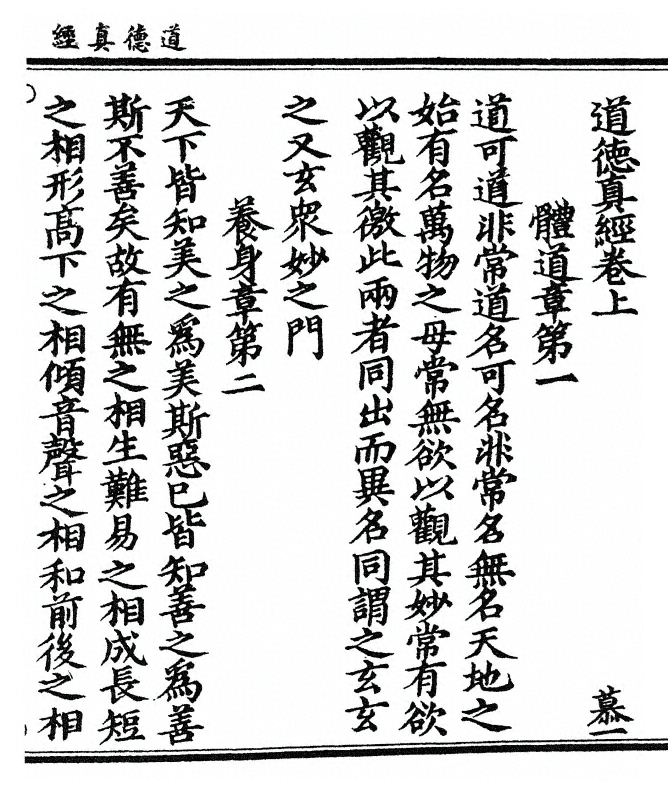 道德真經
道德真經卷上
慕一
體道章第一
道可道非常道名可名非常名無名天地之
始有名萬物之母常無欲以觀其妙常有欲
以觀其徼此兩者同出而異名同謂之玄玄
之又玄眾妙之門
養身章第二
天下皆知美之爲美斯惡已皆知善之爲善
斯不善矣故有無之相生難易之相成長短
之相形高下之相傾音聲之相和前後之相